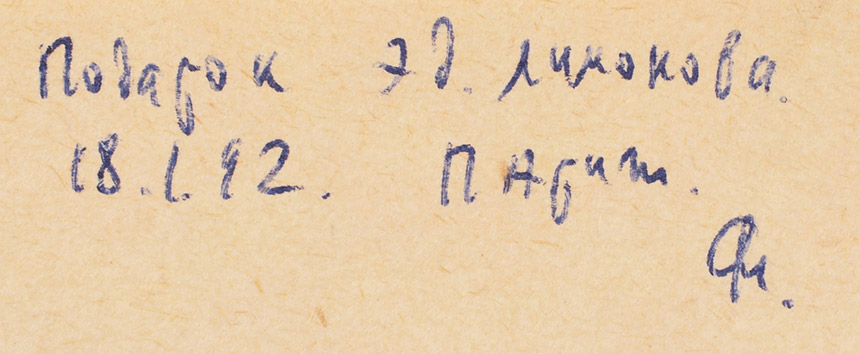 Подарок Эд. Лимонова.
18.1.92. Париж.